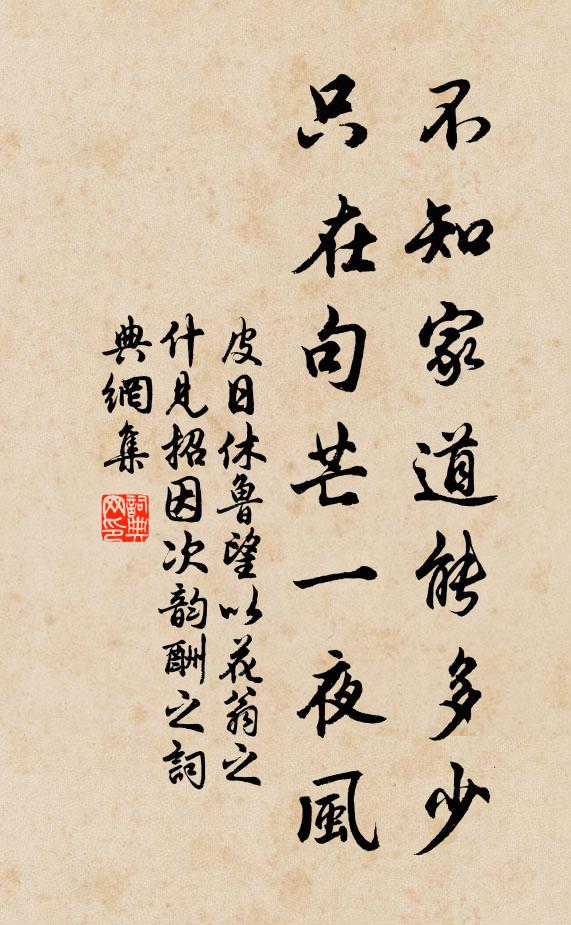 不知家道能多少
只在句芒一夜風
皮日休魯望以花翁之
什見招因次韵酬之詞
典網集
詞典
网印